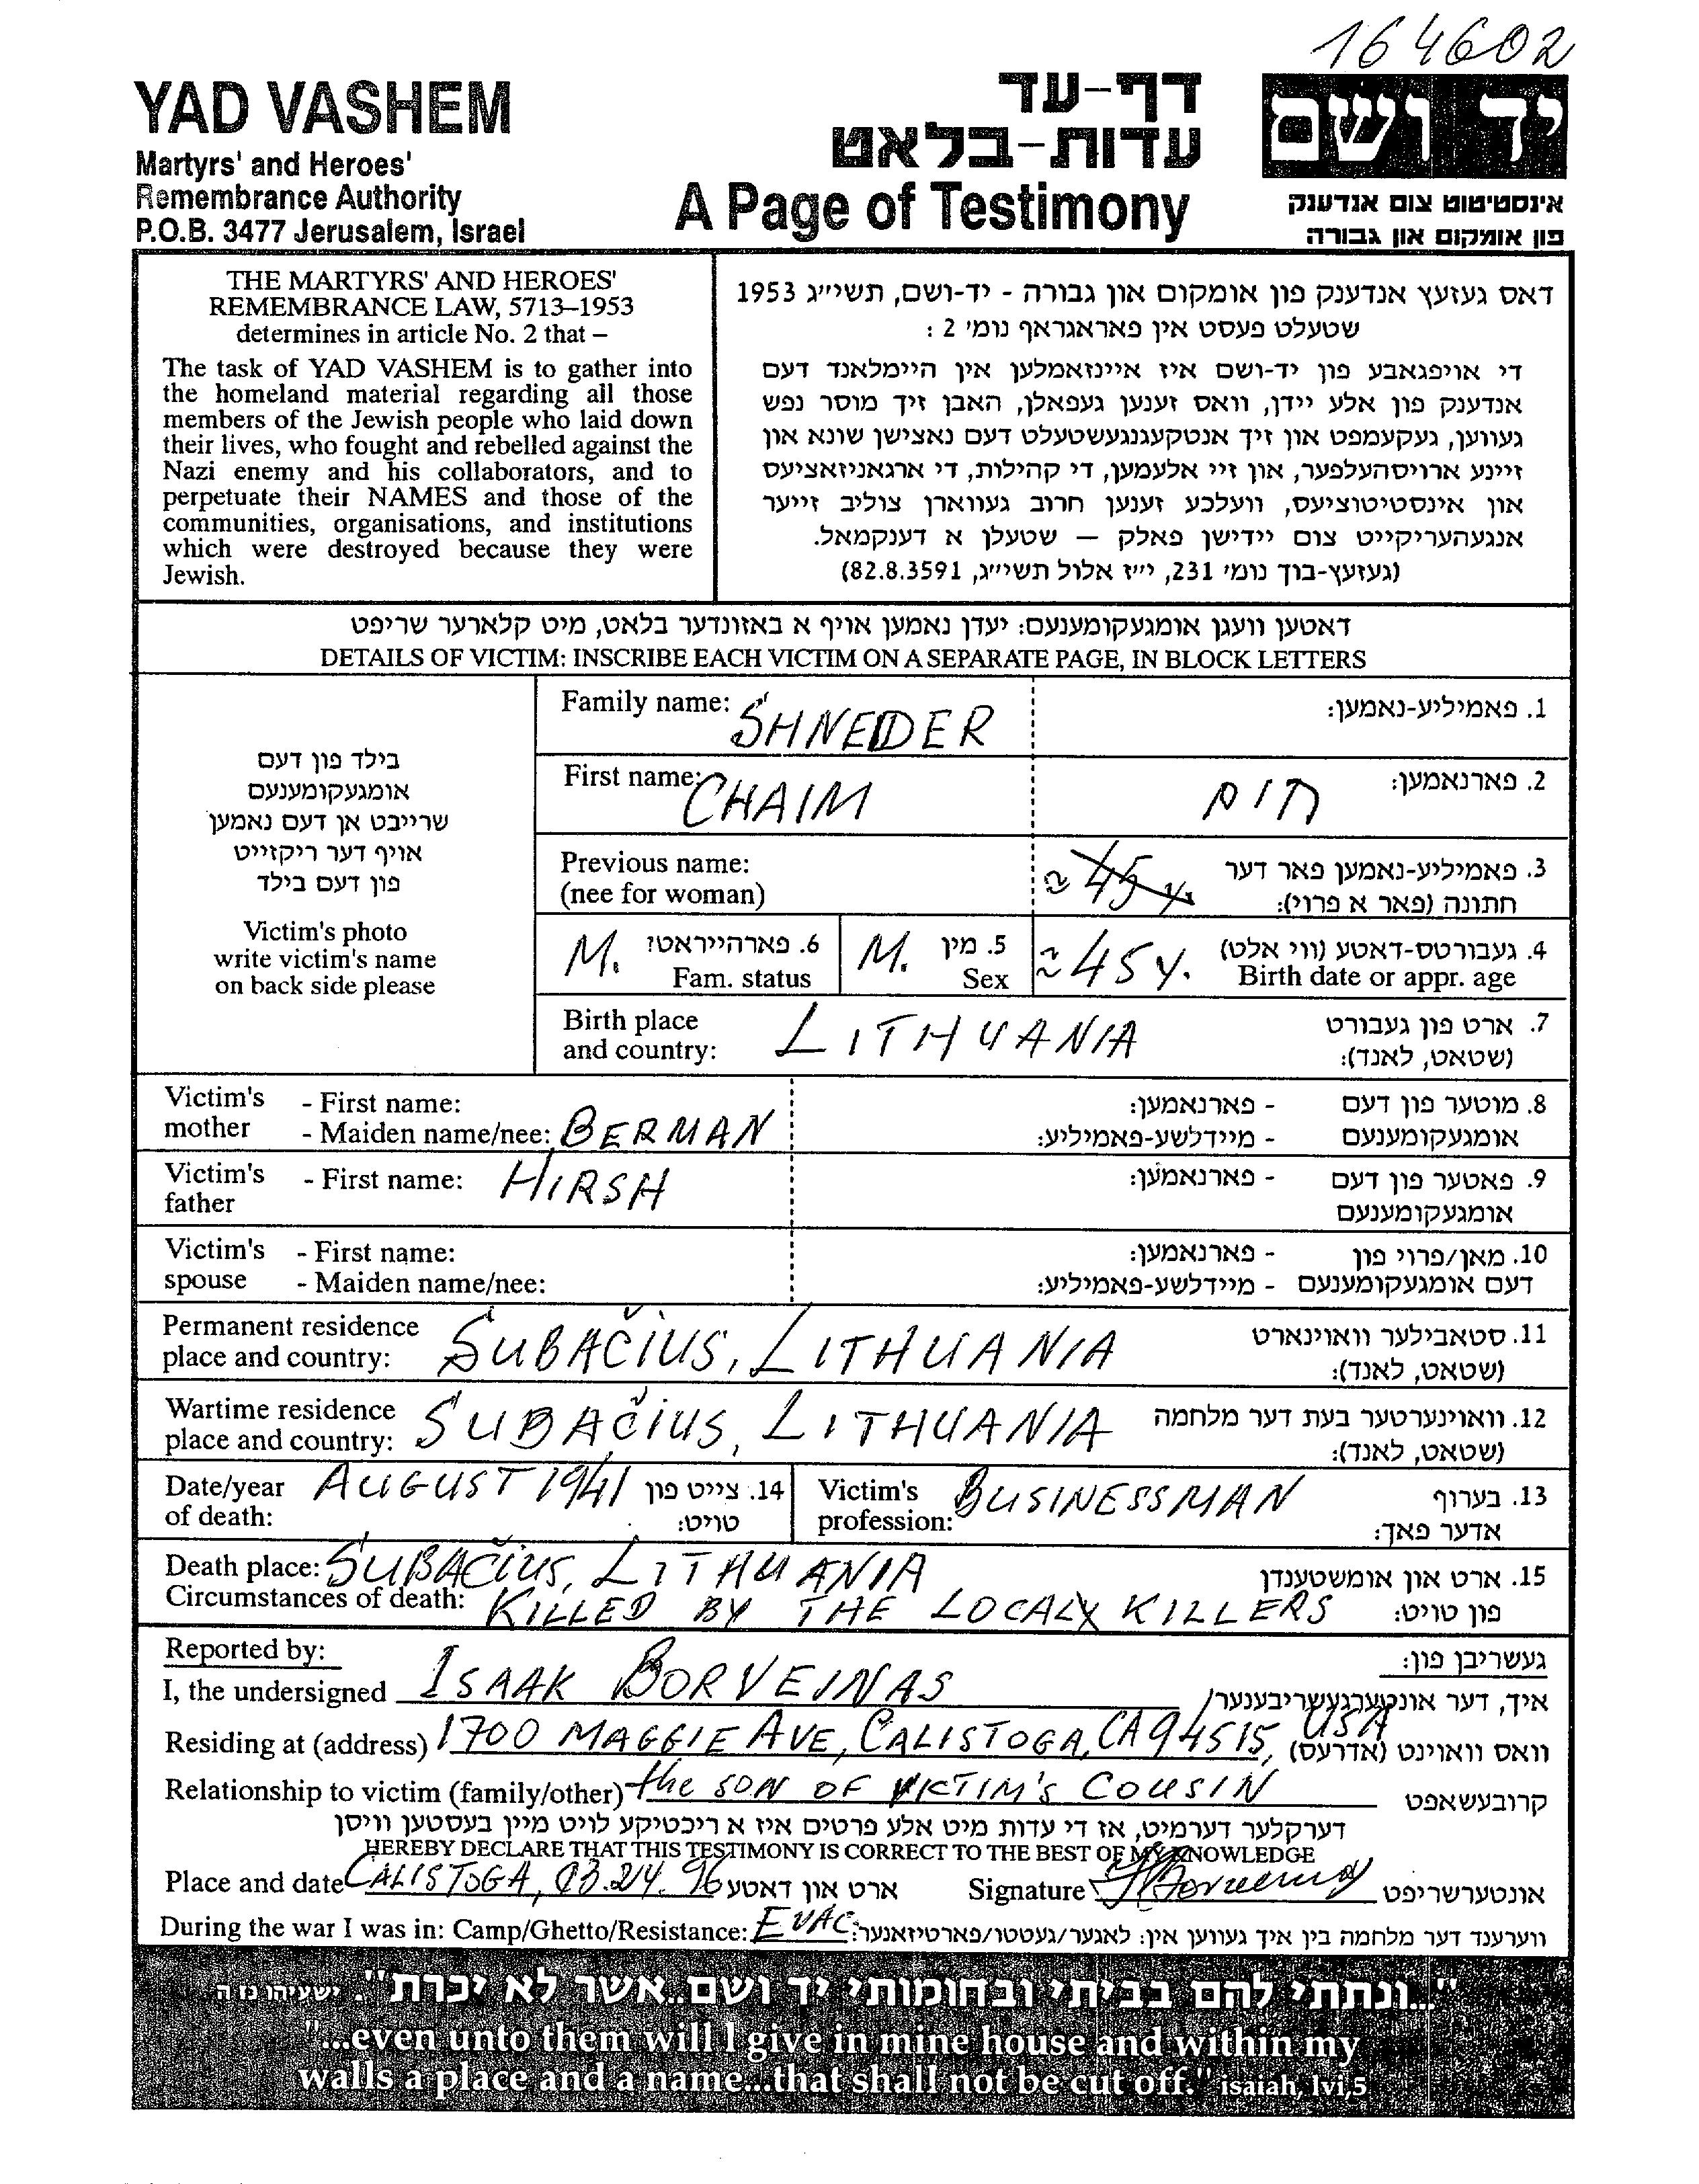 164602
YAD VASHEM
Martyrs' and Heroes'
Remembrance Authority
P.O.B. 3477 Jerusalem, Israel
דף-עד
עדות-בלאט
A Page of Testimony
יד ושם
אינסטיטוט צום אנדענק
פון אומקום און גבורה
THE MARTYRS' AND HEROES'
REMEMBRANCE LAW, 5713–1953
determines in article No. 2 that –
The task of YAD VASHEM is to gather into
the homeland material regarding all those
members of the Jewish people who laid down
their lives, who fought and rebelled against the
Nazi enemy and his collaborators, and to
perpetuate their NAMES and those of the
communities, organisations, and institutions
which were destroyed because they were
Jewish.
דאס געזעץ אנדענק פון אומקום און גבורה - יד-ושם, תשי״ג 1953
שטעלט פעסט אין פאראגראף נומ׳ 2 :
די אויפגאבע פון יד-ושם איז איינזאמלען אין היימלאנד דעם
אנדענק פון אלע יידן, וואס זענען געפאלן, האבן זיך מוסר נפש
געווען, געקעמפט און זיך אנטקעגנגעשטעלט דעם נאצישן שונא און
זיינע ארויסהעלפער, און זיי אלעמען, די קהילות, די ארגאניזאציעס
און אינסטיטוציעס, וועלכע זענען חרוב געווארן צוליב זייער
אנגעהעריקייט צום יידישן פאלק — שטעלן א דענקמאל.
(געזעץ-בוך נומ׳ 231, י״ז אלול תשי״ג, 82.8.3591)
דאטען וועגן אומגעקומענעם: יעדן נאמען אויף א באזונדער בלאט, מיט קלארער שריפט
DETAILS OF VICTIM: INSCRIBE EACH VICTIM ON A SEPARATE PAGE, IN BLOCK LETTERS
בילד פון דעם
אומגעקומענעם
שרייבט אן דעם נאמען
אויף דער ריקזייט
פון דעם בילד
Victim's photo
write victim's name
on back side please
Family name: SHNEIDER 1. פאמיליע-נאמען:
First name: CHAIM חיים 2. פארנאמען:
Previous name: 3. פאמיליע-נאמען פאר דער
(nee for woman) ≈ 45 y. חתונה (פאר א פרוי):
M. 6. פארהייראט? M. 5. מין ≈ 45 y. 4. געבורטס-דאטע (ווי אלט)
Fam. status Sex Birth date or appr. age
Birth place LITHUANIA 7. ארט פון געבורט
and country: (שטאט, לאנד):
Victim's - First name: - פארנאמען: 8. מוטער פון דעם
mother - Maiden name/nee: BERMAN - מיידלשע-פאמיליע: אומגעקומענעם
Victim's - First name: HIRSH - פארנאמען: 9. פאטער פון דעם
father אומגעקומענעם
Victim's - First name: - פארנאמען: 10. מאן/פרוי פון
spouse - Maiden name/nee: - מיידלשע-פאמיליע: דעם אומגעקומענעם
Permanent residence SUBAČIUS, LITHUANIA 11. סטאבילער וואוינארט
place and country: (שטאט, לאנד):
Wartime residence SUBAČIUS, LITHUANIA 12. וואוינערטער בעת דער מלחמה
place and country: (שטאט, לאנד):
Date/year AUGUST 1941 14. צייט פון Victim's BUSINESSMAN 13. בערוף
of death: טויט: profession: אדער פאך:
Death place: SUBAČIUS, LITHUANIA 15. ארט און אומשטענדן
Circumstances of death: KILLED BY THE LOCAL KILLERS פון טויט:
Reported by: געשריבן פון:
I, the undersigned ISAAK BORVEINAS איך, דער אונטערגעשריבענער
Residing at (address) 1700 MAGGIE AVE, CALISTOGA, CA 94515, USA וואס וואוינט (אדרעס)
Relationship to victim (family/other) the SON OF VICTIM'S COUSIN קרובעשאפט
דערקלער דערמיט, אז די עדות מיט אלע פרטים איז א ריכטיקע לויט מיין בעסטען וויסן
HEREBY DECLARE THAT THIS TESTIMONY IS CORRECT TO THE BEST OF MY KNOWLEDGE
Place and date CALISTOGA, 03.24.96 ארט און דאטע Signature אונטערשריפט
During the war I was in: Camp/Ghetto/Resistance: EVAC. ווערענד דער מלחמה בין איך געווען אין: לאגער/געטטו/פארטיזאנער:
"...ונתתי להם בביתי ובחומותי יד ושם...אשר לא יכרת". ישעיהו נו ה
"...even unto them will I give in mine house and within my
walls a place and a name...that shall not be cut off." isaiah, lvi,5